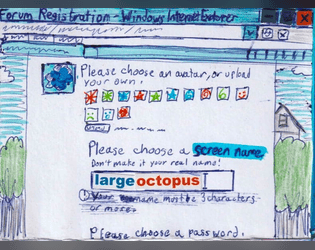 Forum Registration - Windows Internet Explorer
Please choose an avatar, or upload
your own.
Please choose a screen name.
Don't make it your real name!
large octopus
name must be 3 characters
or more.
Please choose a password.